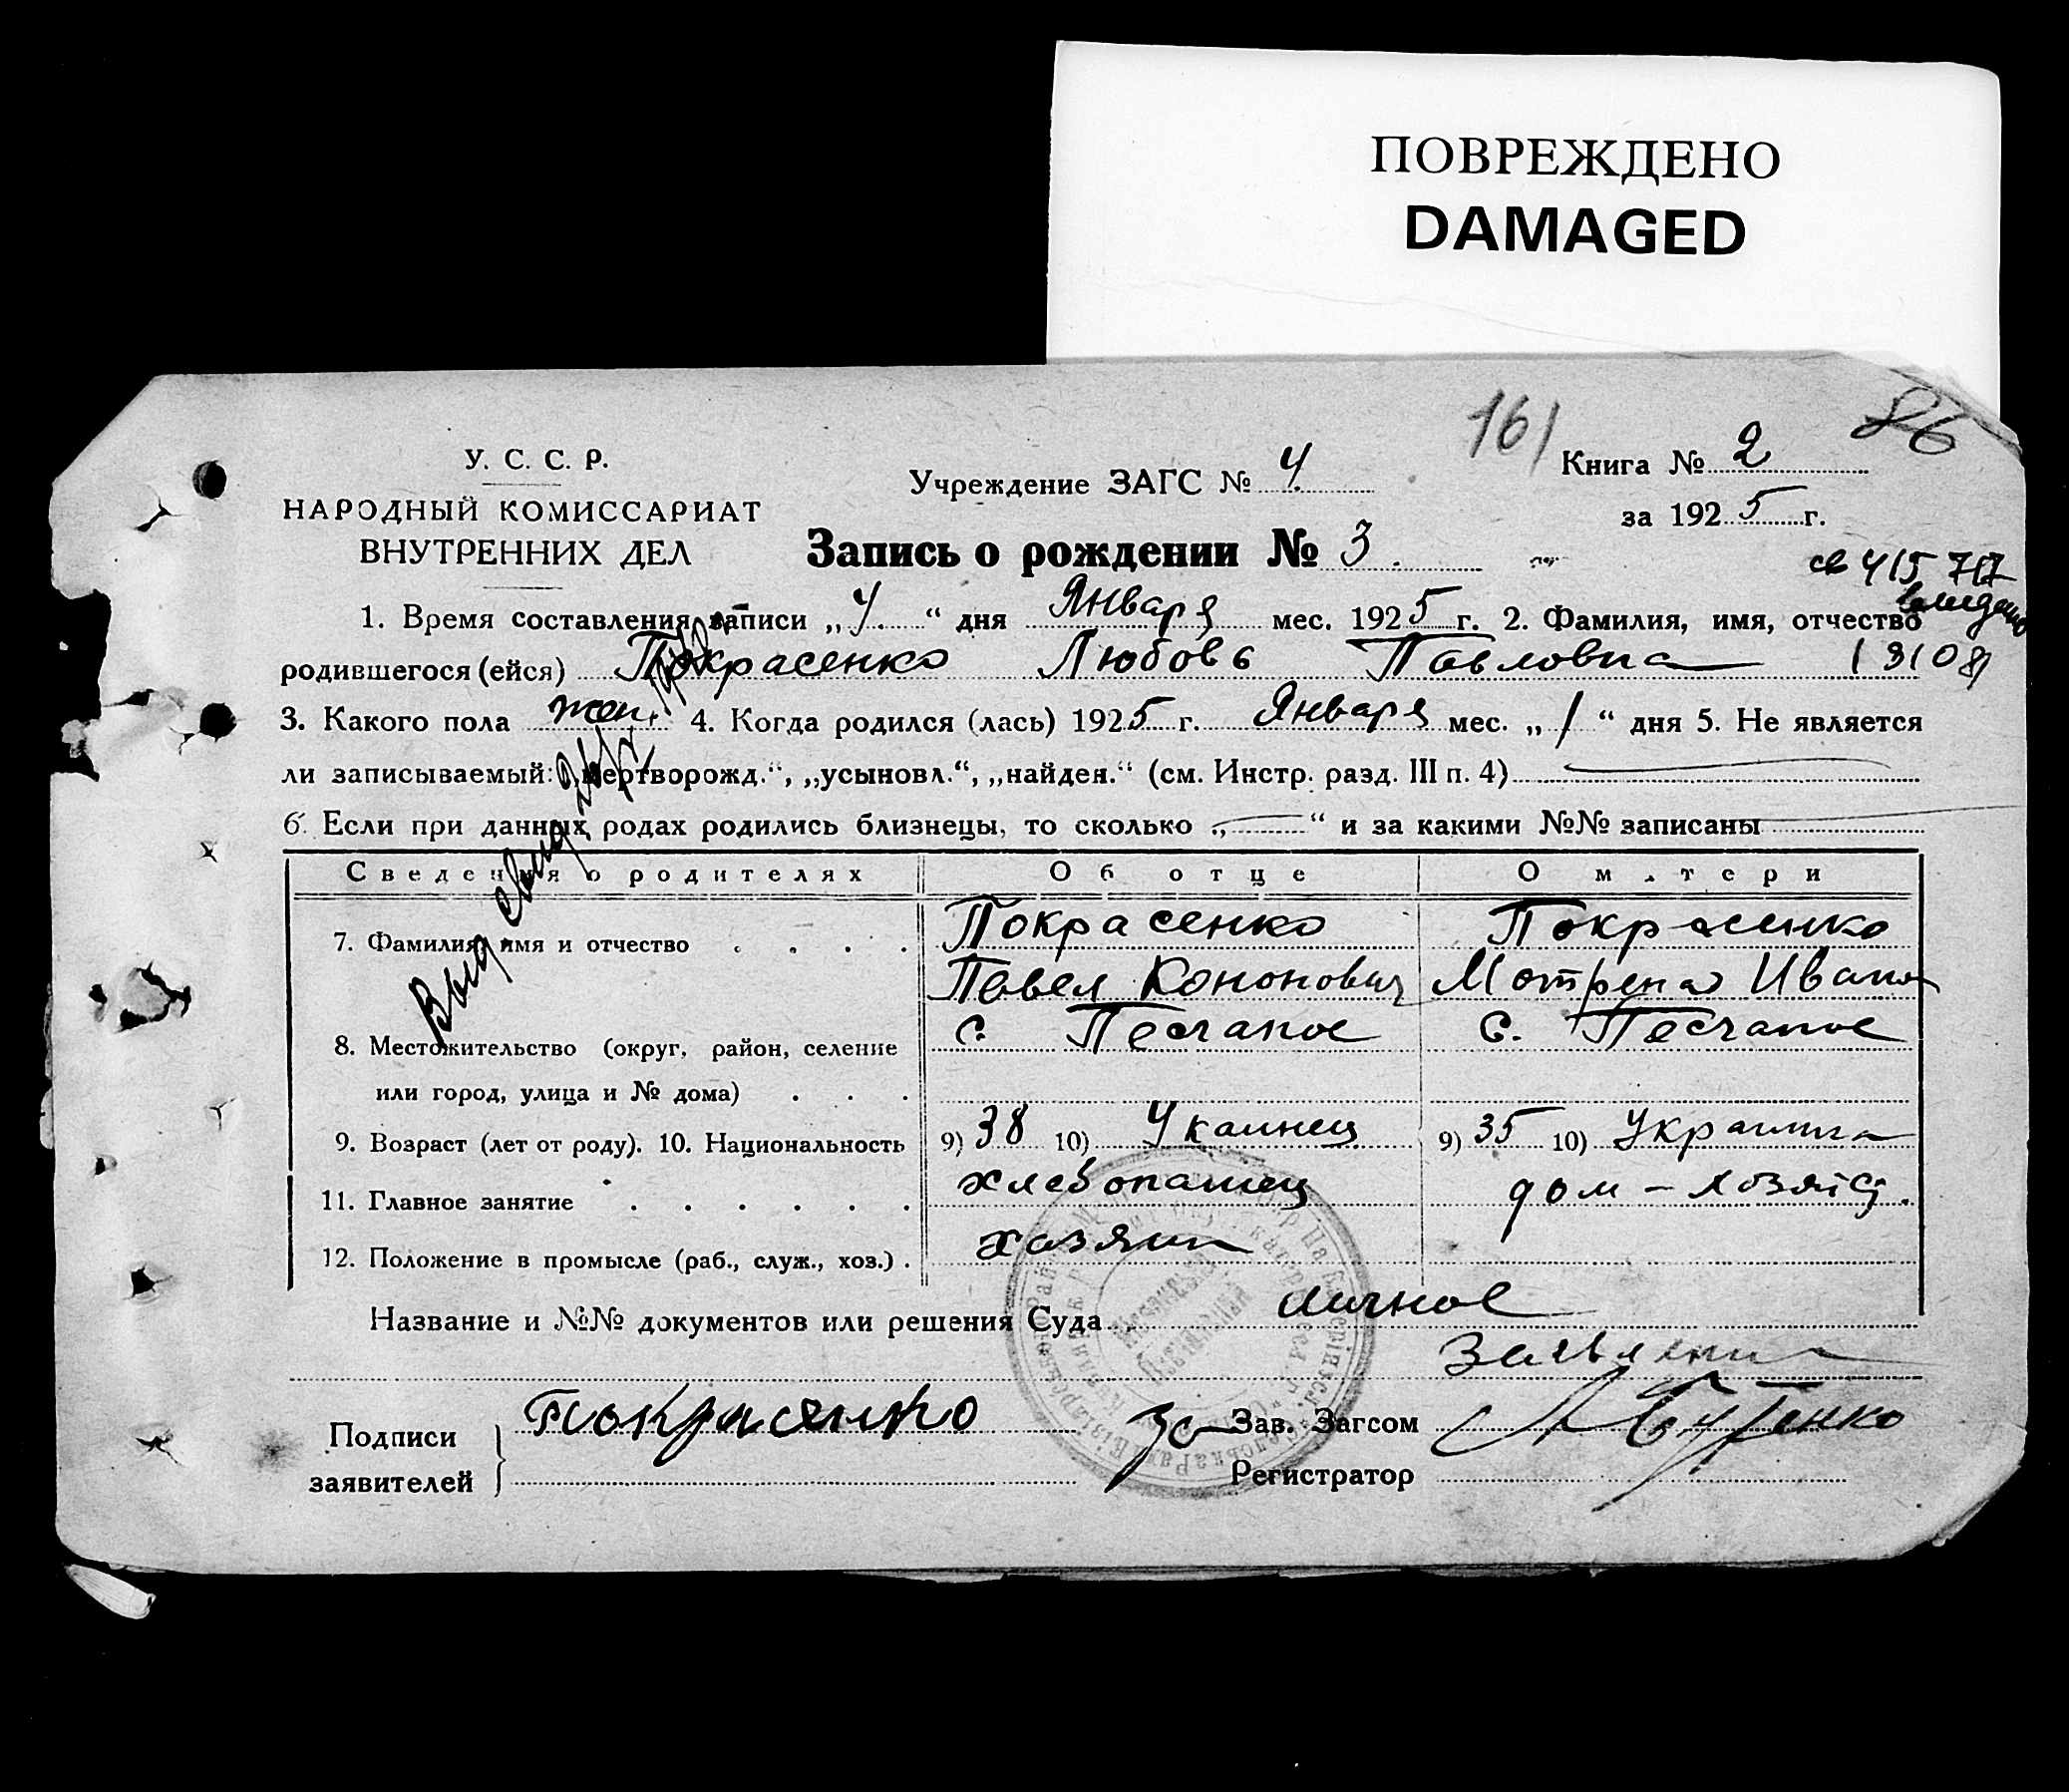 ПОВРЕЖДЕНО
DAMAGED
161
86
У. С. С. Р.
НАРОДНЫЙ КОМИССАРИАТ
ВНУТРЕННИХ ДЕЛ
Учреждение ЗАГС № 4
Книга № 2
за 1925 г.
Запись о рождении № 3
1. Время составления записи „4“ дня Января мес. 1925 г. 2. Фамилия, имя, отчество
родившегося (ейся) Покрасенко Любовь Павловна
3. Какого пола жен. 4. Когда родился (лась) 1925 г. Января мес. „1“ дня 5. Не является
ли записываемый: „мертворожд.“, „усыновл.“, „найден.“ (см. Инстр. разд. III п. 4)
6. Если при данных родах родились близнецы, то сколько „—“ и за какими №№ записаны
Сведения о родителях Об отце О матери
7. Фамилия, имя и отчество Покрасенко Покрасенко
Павел Кононович Мотрена Иван
8. Местожительство (округ, район, селение с. Песчаное с. Песчаное
или город, улица и № дома)
9. Возраст (лет от роду). 10. Национальность 9) 38 10) Украинец 9) 35 10) Украинка
11. Главное занятие хлебопашец дом-хозяйс.
12. Положение в промысле (раб., служ., хоз.) хозяин
Название и №№ документов или решения Суда личное
заявление
Подписи заявителей Покрасенко
За Зав. Загсом
Регистратор